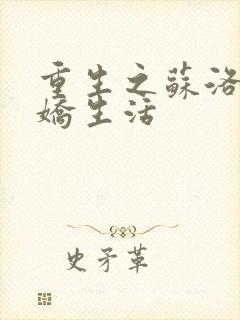 重生之蘇洛
嬌生活
史矛革